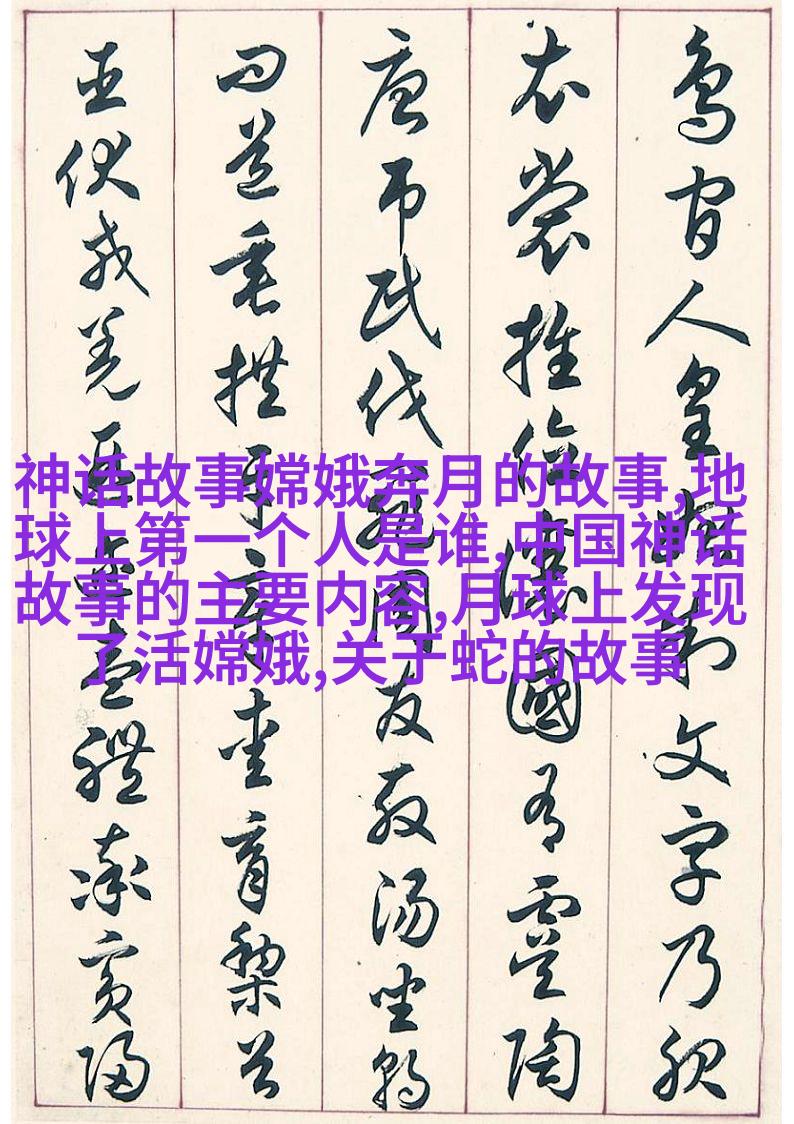 鳥官人皇始制文字乃服
衣裳推位讓國有虞陶
唐弔民伐罪周發殷湯坐朝
問道垂拱平章愛育黎首
臣伏戎羌遐邇壹體率賓歸
神话故事嫦娥奔月的故事,地
球上第一个人是谁,中国神话
故事的主要内容,月球上发现
了活嫦娥,关于蛇的故事